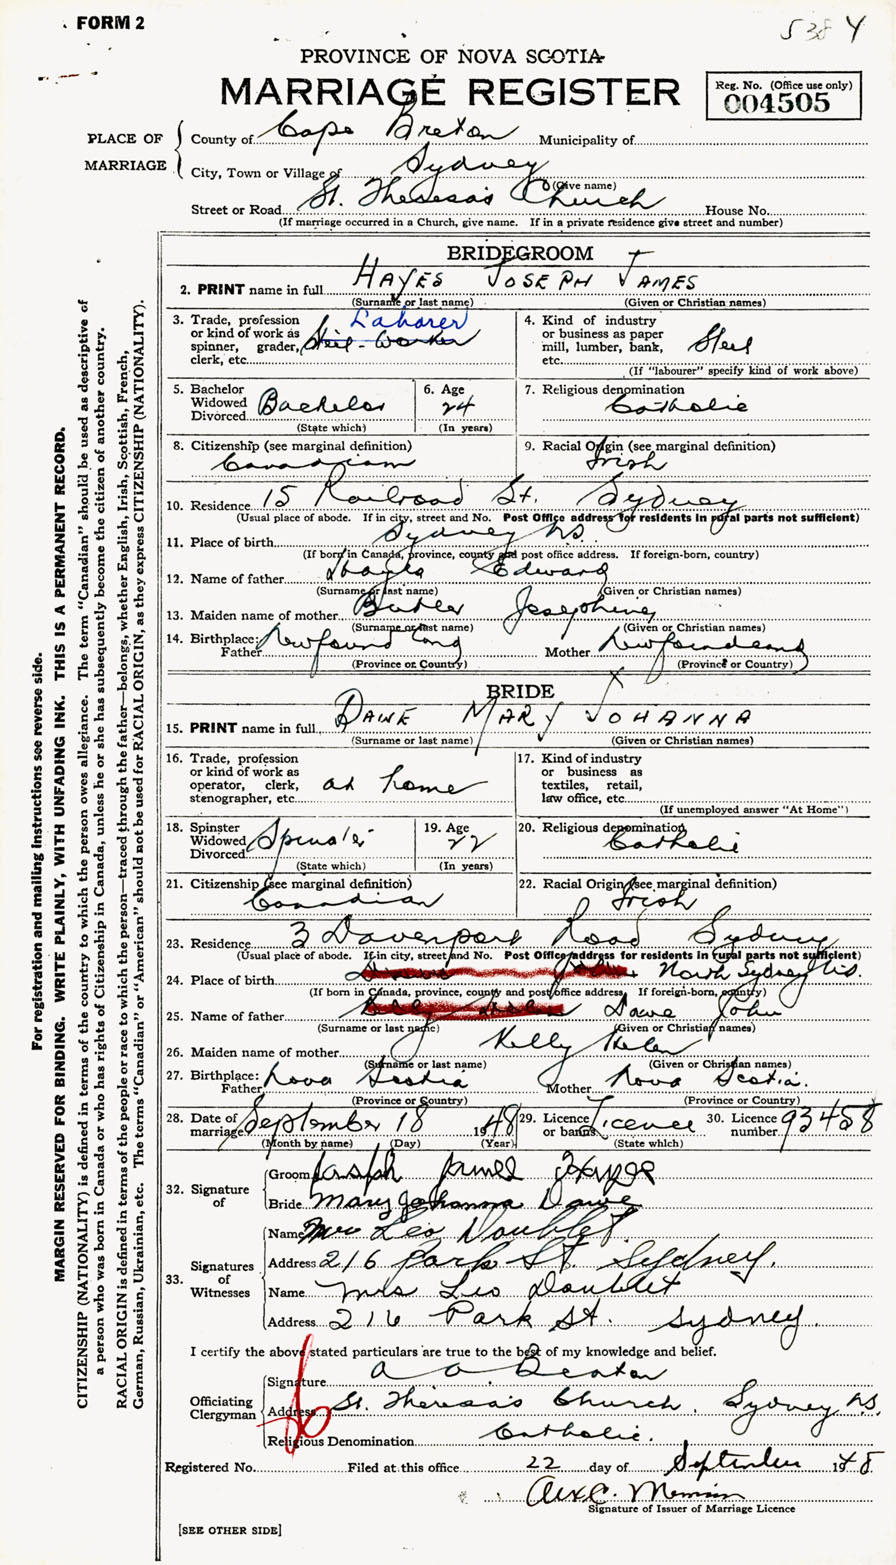 FORM 2
538 4
PROVINCE OF NOVA SCOTIA
MARRIAGE REGISTER
Reg. No. (Office use only)
004505
PLACE OF MARRIAGE
County of Cape Breton Municipality of
City, Town or Village of Sydney
(Give name)
Street or Road St. Theresa's Church House No.
(If marriage occurred in a Church, give name. If in a private residence give street and number)
BRIDEGROOM
2. PRINT name in full HAYES JOSEPH JAMES
(Surname or last name) (Given or Christian names)
3. Trade, profession or kind of work as spinner, grader, clerk, etc. Laborer Steel-Worker
4. Kind of industry or business as paper mill, lumber, bank, etc. Steel
(If "labourer" specify kind of work above)
5. Bachelor Widowed Divorced Bachelor
(State which)
6. Age 24
(In years)
7. Religious denomination
Catholic
8. Citizenship (see marginal definition)
Canadian
9. Racial Origin (see marginal definition)
Irish
10. Residence 15 Railroad St. Sydney
(Usual place of abode. If in city, street and No. Post Office address for residents in rural parts not sufficient)
11. Place of birth Sydney N.S.
(If born in Canada, province, county and post office address. If foreign-born, country)
12. Name of father Hayes Edward
(Surname or last name) (Given or Christian names)
13. Maiden name of mother Butler Josephine
(Surname or last name) (Given or Christian names)
14. Birthplace: Father Newfoundland Mother Newfoundland
(Province or Country) (Province or Country)
BRIDE
15. PRINT name in full DAWE MARY JOHANNA
(Surname or last name) (Given or Christian names)
16. Trade, profession or kind of work as operator, clerk, stenographer, etc. at home
17. Kind of industry or business as textiles, retail, law office, etc.
(If unemployed answer "At Home")
18. Spinster Widowed Divorced Spinster
(State which)
19. Age 22
(In years)
20. Religious denomination
Catholic
21. Citizenship (see marginal definition)
Canadian
22. Racial Origin (see marginal definition)
Irish
23. Residence 3 Davenport Road Sydney
(Usual place of abode. If in city, street and No. Post Office address for residents in rural parts not sufficient)
24. Place of birth North Sydney N.S.
(If born in Canada, province, county and post office address. If foreign-born, country)
25. Name of father Dawe John
(Surname or last name) (Given or Christian names)
26. Maiden name of mother Kelly Helen
(Surname or last name) (Given or Christian names)
27. Birthplace: Father Nova Scotia Mother Nova Scotia.
(Province or Country) (Province or Country)
28. Date of marriage September 18 1948
(Month by name) (Day) (Year)
29. Licence or banns Licence
(State which)
30. Licence number 93458
32. Signature of
Groom Joseph James Hayes
Bride Mary Johanna Dawe
33. Signatures of Witnesses
Name Mr Leo Doublet
Address 216 Park St. Sydney.
Name Mrs Leo Doublet
Address 216 Park St. Sydney.
I certify the above stated particulars are true to the best of my knowledge and belief.
Officiating Clergyman
Signature a a Beaton
Address St. Theresa's Church, Sydney N.S.
Religious Denomination Catholic.
Registered No. Filed at this office 22 day of September 1948
Signature of Issuer of Marriage Licence
[SEE OTHER SIDE]
For registration and mailing instructions see reverse side.
MARGIN RESERVED FOR BINDING. WRITE PLAINLY, WITH UNFADING INK. THIS IS A PERMANENT RECORD.
CITIZENSHIP (NATIONALITY) is defined in terms of the country to which the person owes allegiance. The term "Canadian" should be used as descriptive of
a person who was born in Canada or who has rights of Citizenship in Canada, unless he or she has subsequently become the citizen of another country.
RACIAL ORIGIN is defined in terms of the people or race to which the person—traced through the father—belongs, whether English, Irish, Scottish, French,
German, Russian, Ukrainian, etc. The terms "Canadian" or "American" should not be used for RACIAL ORIGIN, as they express CITIZENSHIP (NATIONALITY).